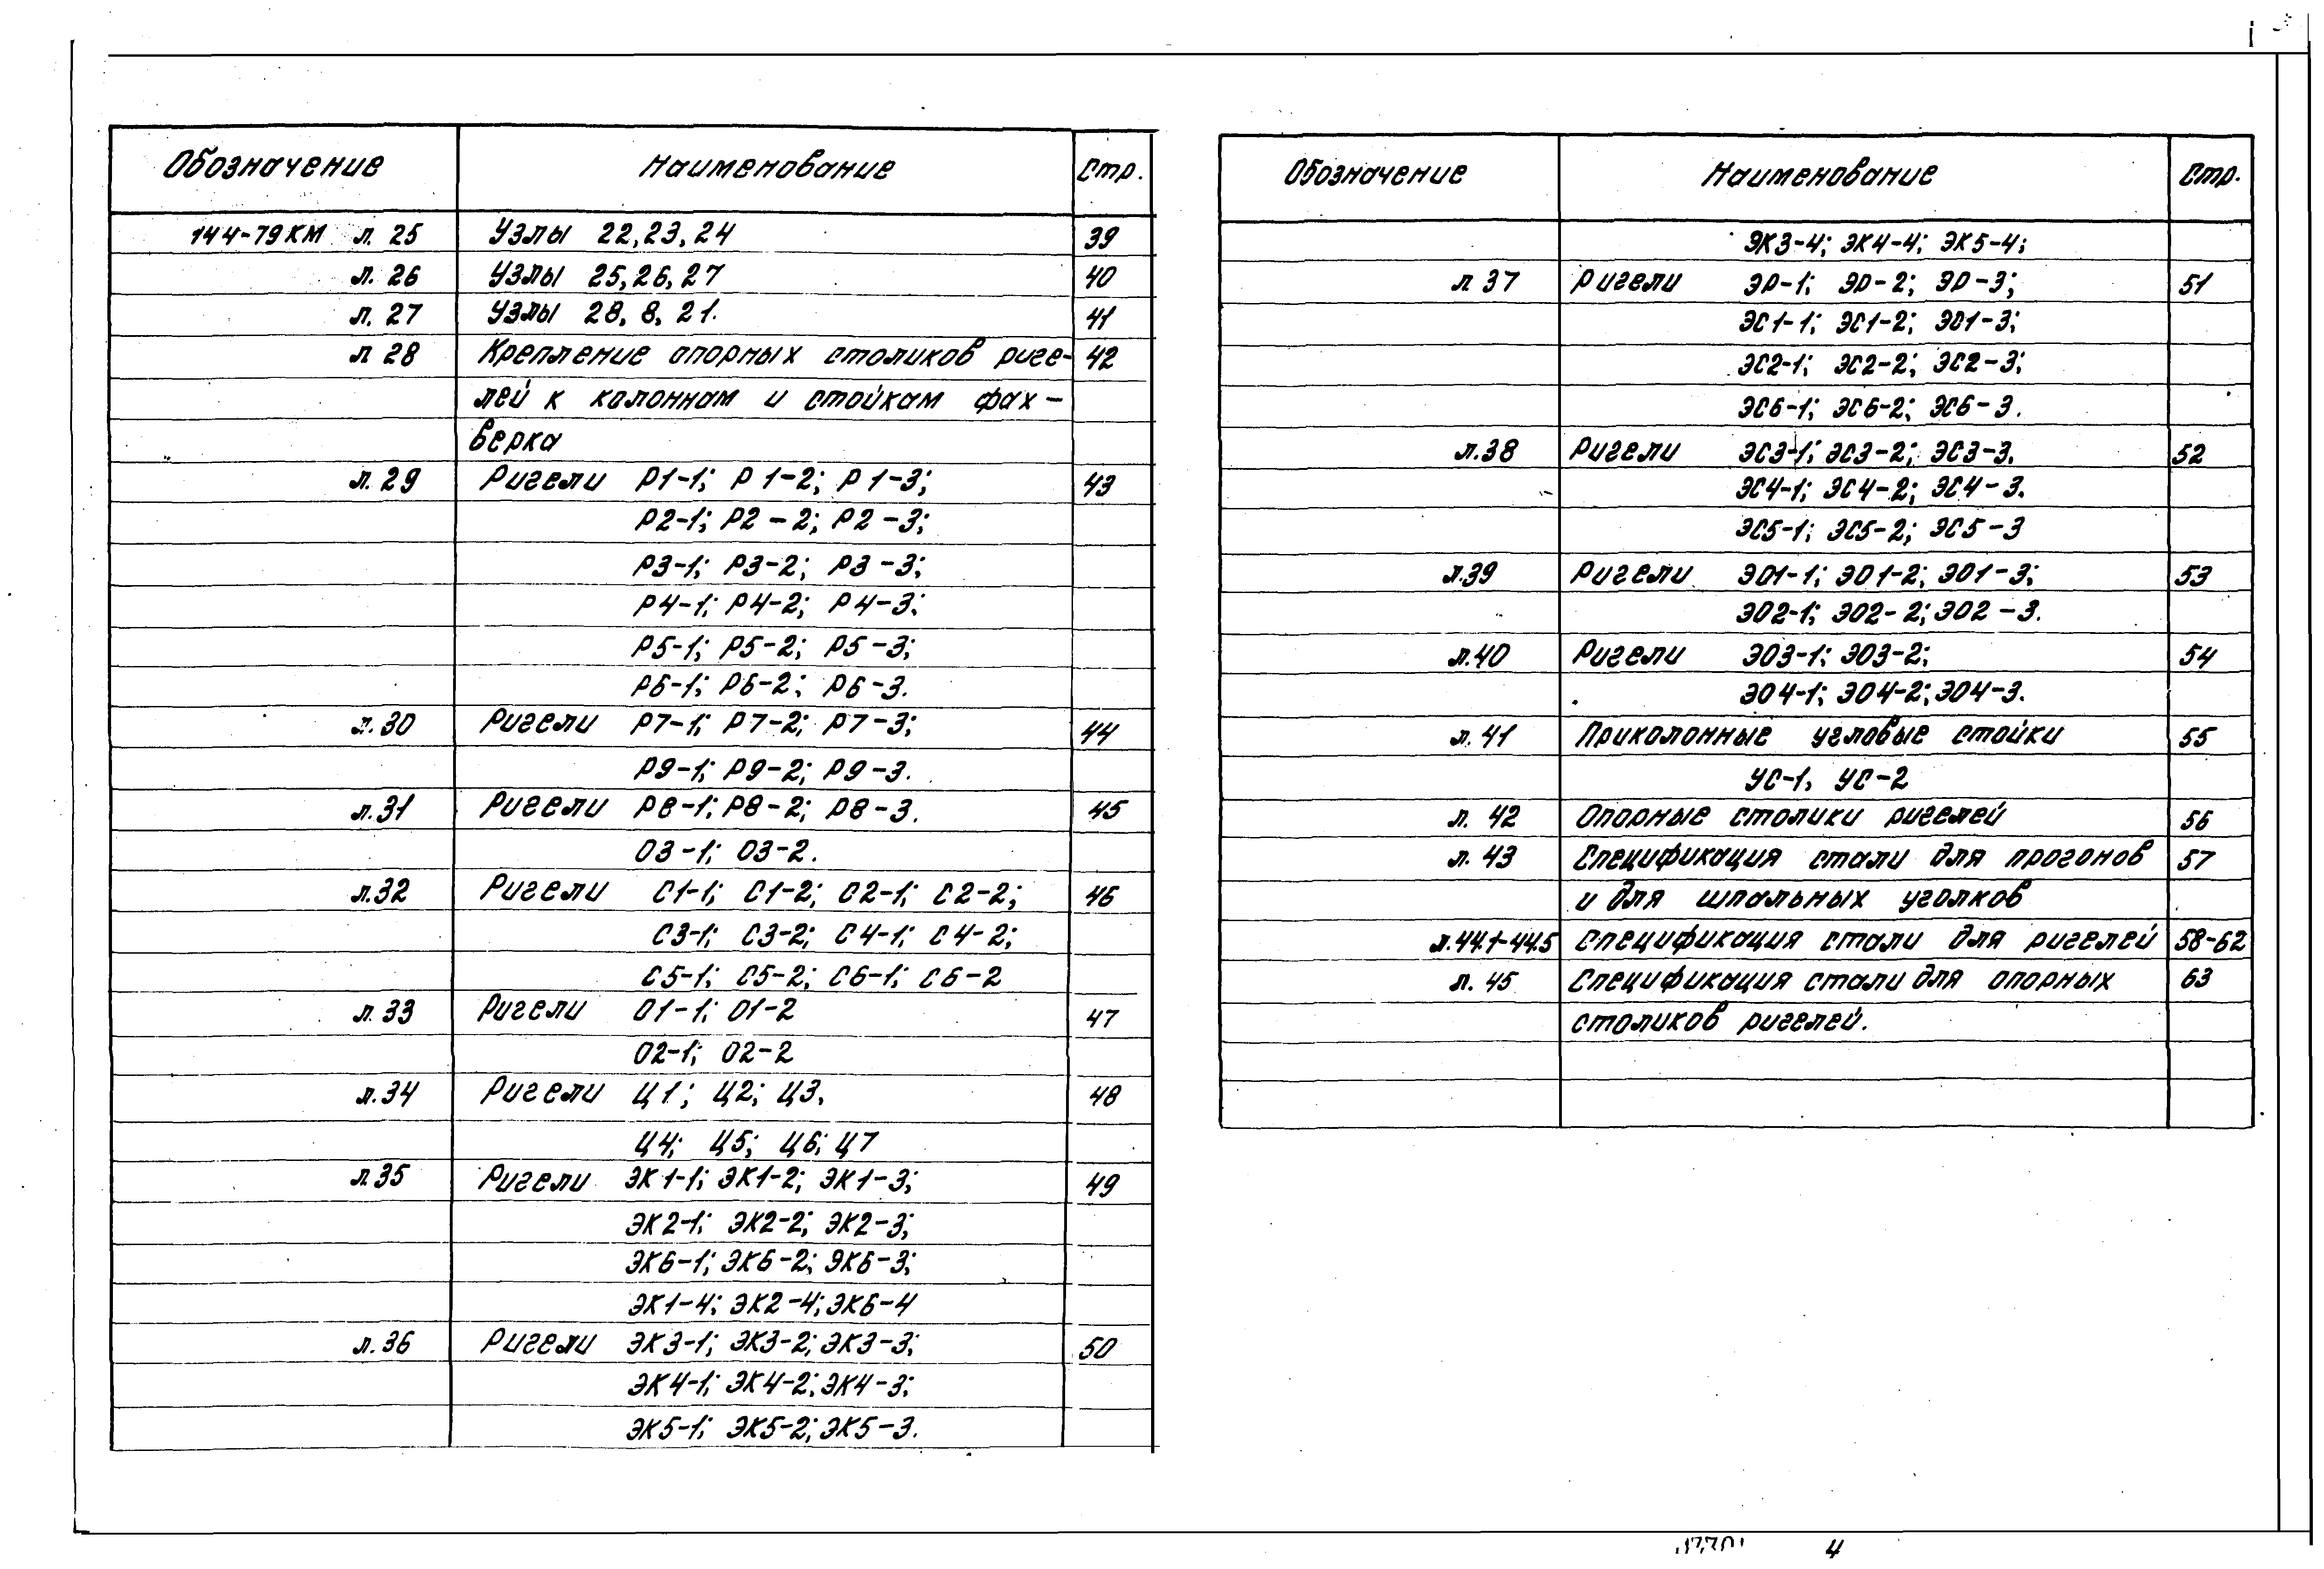 Обозначение Наименование Стр.
144-79КМ л. 25 Узлы 22, 23, 24 39
л. 26 Узлы 25, 26, 27 40
л. 27 Узлы 28, 8, 21. 41
л 28 Крепление опорных столиков риге- 42
лей к колоннам и стойкам фах-
верка
л. 29 Ригели Р1-1; Р1-2; Р1-3; 43
Р2-1; Р2-2; Р2-3;
Р3-1; Р3-2; Р3-3;
Р4-1; Р4-2; Р4-3;
Р5-1; Р5-2; Р5-3;
Р6-1; Р6-2; Р6-3.
л.30 Ригели Р7-1; Р7-2; Р7-3; 44
Р9-1; Р9-2; Р9-3.
л.31 Ригели Р8-1; Р8-2; Р8-3. 45
О3-1; О3-2.
л.32 Ригели С1-1; С1-2; С2-1; С2-2; 46
С3-1; С3-2; С4-1; С4-2;
С5-1; С5-2; С6-1; С6-2
л.33 Ригели О1-1; О1-2 47
О2-1; О2-2
л.34 Ригели Ц1; Ц2; Ц3, 48
Ц4; Ц5; Ц6; Ц7
л.35 Ригели ЭК1-1; ЭК1-2; ЭК1-3; 49
ЭК2-1; ЭК2-2; ЭК2-3;
ЭК6-1; ЭК6-2; ЭК6-3;
ЭК1-4; ЭК2-4; ЭК6-4
л.36 Ригели ЭК3-1; ЭК3-2; ЭК3-3; 50
ЭК4-1; ЭК4-2; ЭК4-3;
ЭК5-1; ЭК5-2; ЭК5-3.
Обозначение Наименование Стр.
ЭК3-4; ЭК4-4; ЭК5-4;
л 37 Ригели ЭР-1; ЭР-2; ЭР-3; 51
ЭС1-1; ЭС1-2; ЭС1-3;
ЭС2-1; ЭС2-2; ЭС2-3;
ЭС6-1; ЭС6-2; ЭС6-3.
л.38 Ригели ЭС3-1; ЭС3-2; ЭС3-3. 52
ЭС4-1; ЭС4-2; ЭС4-3.
ЭС5-1; ЭС5-2; ЭС5-3
л.39 Ригели ЭО1-1; ЭО1-2; ЭО1-3; 53
ЭО2-1; ЭО2-2; ЭО2-3.
л.40 Ригели ЭО3-1; ЭО3-2; 54
ЭО4-1; ЭО4-2; ЭО4-3.
л. 41 Приколонные угловые стойки 55
УС-1, УС-2
л. 42 Опорные столики ригелей 56
л. 43 Спецификация стали для прогонов 57
и для шпальных уголков
л.44.1-44.5 Спецификация стали для ригелей 58-62
л. 45 Спецификация стали для опорных 63
столиков ригелей.
4